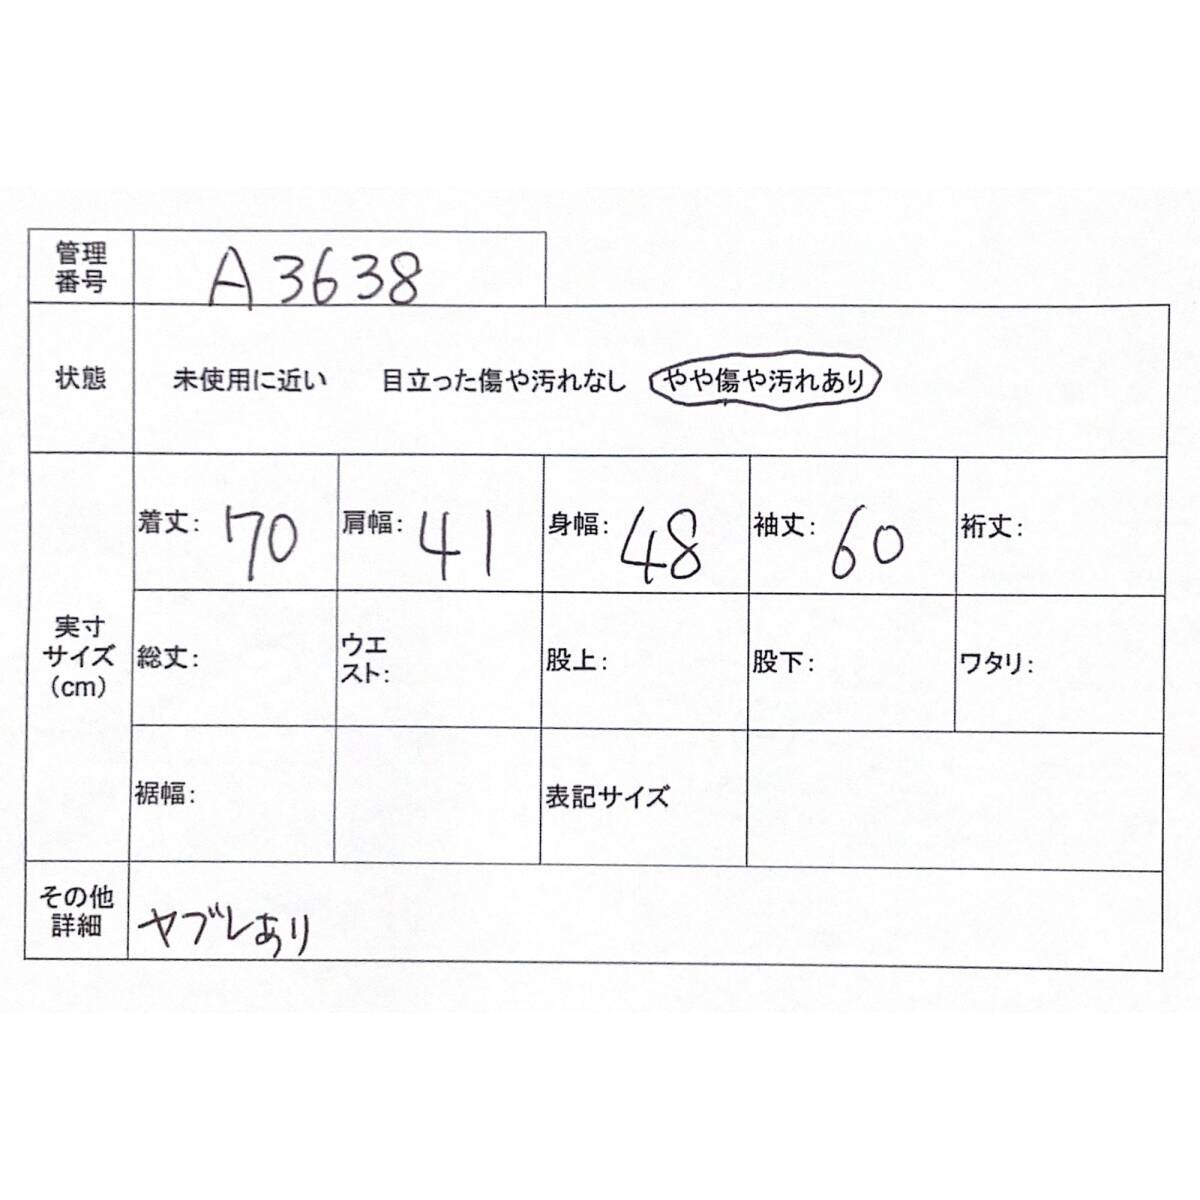 管理
番号
A3638
状態
未使用に近い 目立った傷や汚れなし やや傷や汚れあり
実寸
サイズ
(cm)
着丈: 70 肩幅: 41 身幅: 48 袖丈: 60 裄丈:
総丈: ウエ
スト: 股上: 股下: ワタリ:
裾幅: 表記サイズ
その他
詳細
ヤブレあり